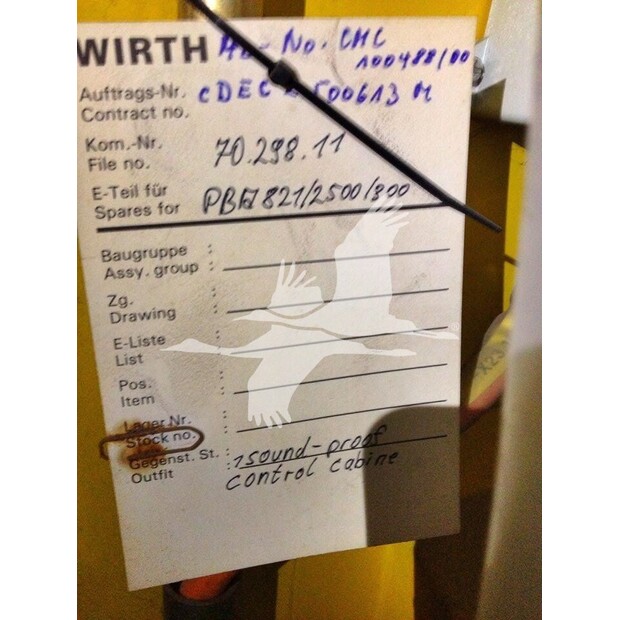 WIRTH No. CMC
100488/00
Auftrags-Nr.
Contract no. CDEC 500613 M
Kom.-Nr.
File no. 70.298.11
E-Teil für
Spares for PBA 821/2500/300
Baugruppe :
Assy. group :
Zg. :
Drawing :
E-Liste :
List :
Pos. :
Item :
Lager Nr. :
Stock no. :
Gegenst. St. : 1 sound-proof
Outfit control cabine